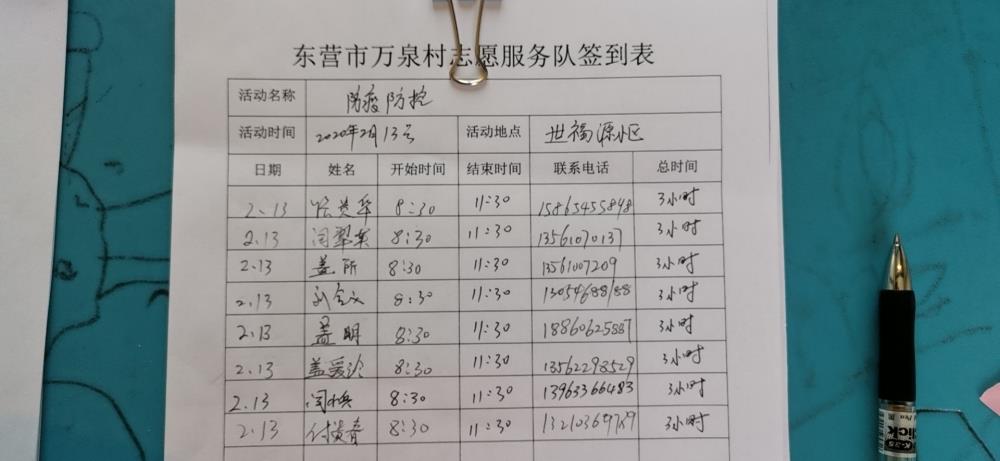 东营市万泉村志愿服务队签到表
活动名称 防疫防控
活动时间 2020年2月13号 活动地点 世福源小区
日期 姓名 开始时间 结束时间 联系电话 总时间
2.13 8:30 11:30 15865455848 3小时
2.13 8:30 11:30 3小时
2.13 盖所 8:30 11:30 3小时
2.13 8:30 11:30 13054688188 3小时
2.13 盖明 8:30 11:30 18860625887 3小时
2.13 盖爱玲 8:30 11:30 13562298529 3小时
2.13 8:30 11:30 13963366483 3小时
2.13 付贵春 8:30 11:30 3小时